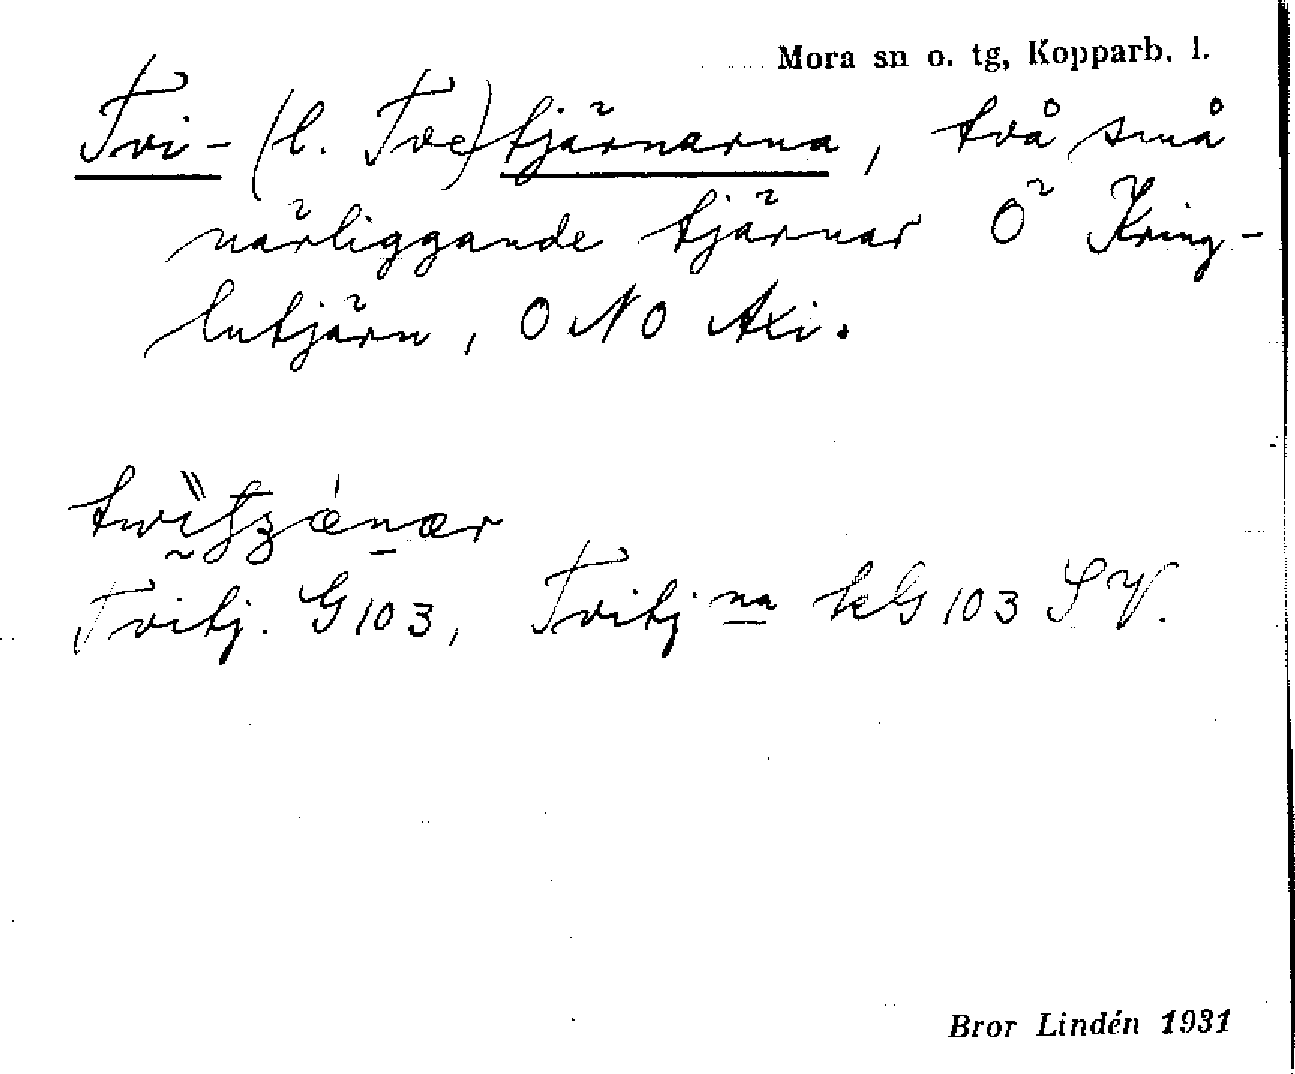 Mora sn o. tg, Kopparb. l.
Tvi- (l. Tve)tjärnarna, två små
närliggande tjärnar Ö Kring-
lutjärn, ONO Axi.
Tvitj. G 103, Tvitjna kG 103 SV.
Bror Lindén 1931